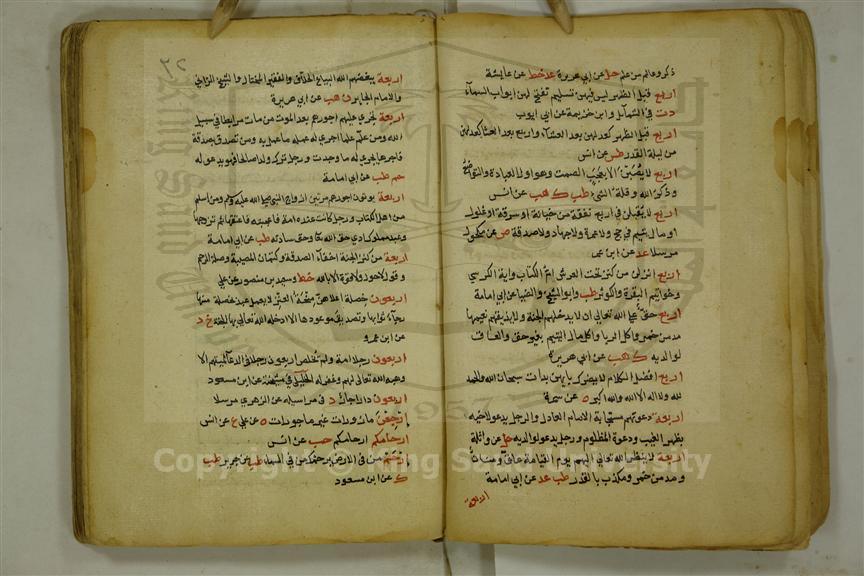 ذكر وعالم من علم حل عن ابي هريرة عد خط عن عايشة
اربع قبل الظهر ليس فيهن تسليم تفتح لهن ابواب السماء
دت في الشمايل وابن خزيمة عن ابي ايوب
اربع قبل الظهر كعدلهن بعد العشاء واربع بعد العشا كعدلهن
من ليلة القدر طس عن انس
اربع لا يصبن الا بعجب الصمت وهو اول العبادة والتواضع
وذكر الله وقلة الشي طب ك هب عن انس
اربع لا يقبلن في اربع نفقة من خيانة او سرقة او غلول
او مال يتيم في حج ولا عمرة ولا جهاد ولا صدقة ص عن مكحول
مرسلا عد عن ابن عمر
اربع انزلن من كنز تحت العرش ام الكتاب واية الكرسي
وخواتيم البقرة والكوثر طب وابو الشيخ والضيا عن ابي امامة
اربع حق على الله تعالى ان لا يدخلهم الجنة ولا يذيقهم نعيمها
مدمن خمر واكل الربا واكل مال اليتيم بغير حق والعاق
لوالديه ك هب عن ابي هريرة
اربع افضل الكلام لا يضرك بايهن بدات سبحان الله والحمد
لله ولا اله الا الله والله اكبر ه عن سمرة
اربعة دعوتهم مستجابة الامام العادل والرجل يدعو لاخيه
بظهر الغيب ودعوة المظلوم ورجل يدعو لوالديه حل عن واثلة
اربعة لا ينظر الله تعالى اليهم يوم القيامة عاق ومنان
ومدمن خمر ومكذب بالقدر طب عد عن ابي امامة
اربعة
٢٢
اربعة يبغضهم الله البياع الحلاف والفقير المختال والشيخ الزاني
والامام الجاير ن هب عن ابي هريرة
اربعة تجري عليهم اجورهم بعد الموت من مات مرابطا في سبيل
الله ومن علم علما اجري له عمله ما عمل به ومن تصدق بصدقة
فاجرها يجري له ما وجدت ورجل ترك ولدا صالحا فهو يدعو له
حم طب عن ابي امامة
اربعة يوتون اجورهم مرتين ازواج النبي صلى الله عليه وسلم ومن اسلم
من اهل الكتاب ورجل كانت عنده امة فاعجبته فاعتقها ثم تزوجها
وعبد مملوك ادى حق الله تعالى وحق سادته طب عن ابي امامة
اربعة من كنز الجنة اخفاء الصدقة وكتمان المصيبة وصلة الرحم
وقول لا حول ولا قوة الا بالله خط وسعيد بن منصور عن علي
اربعون خصلة اعلاهن منحة العنز لا يعمل عبد بخصلة منها
رجاء ثوابها وتصديق موعودها الا ادخله الله تعالى بها الجنة خ د
عن ابن عمرو
اربعون رجلا امة ولم يخلص اربعون رجلا في الدعا لميتهم الا
وهبه الله تعالى لهم وغفر له الخليلي في مشيخته عن ابن مسعود
اربعون دارا جار د في مراسيله عن الزهري مرسلا
ارجعن مازورات غير ماجورات ه عن علي ع عن انس
ارحامكم ارحامكم حب عن انس
ارحم من في الارض يرحمك من في السماء طب عن جرير طب
ك عن ابن مسعود
Copyright © King Saud University
1957